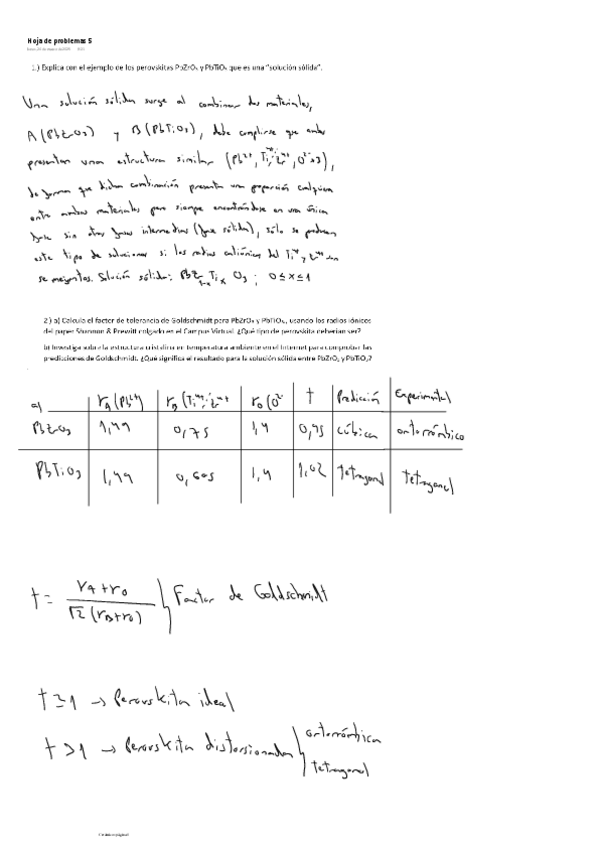 Hoja de problemas 5
1.) Explica con el ejemplo de los perovskitas PbZrO₃ y PbTiO₃ que es una "solución sólida".
Una solución sólida surge al combinar dos materiales,
A (PbZrO₃) y B (PbTiO₃), debe cumplirse que ambos
presentan una estructura similar (Pb²⁺, Ti⁴⁺, Zr⁴⁺, O²⁻x3),
de forma que dicha combinación presenta una proporción cualquiera
entre ambos materiales pero siempre encontrándose en una única
fase sin otras fases intermedias (fase sólida), sólo se producen
este tipo de soluciones si los radios catiónicos del Ti⁴⁺ y Zr⁴⁺ son
semejantes. Solución sólida: PbZr₁₋ₓTiₓO₃ ; 0 ≤ x ≤ 1
2.) a) Calcula el factor de tolerancia de Goldschmidt para PbZrO₃ y PbTiO₃, usando los radios iónicos
del paper Shannon & Prewitt colgado en el Campus Virtual. ¿Qué tipo de perovskita deberían ser?
b) Investiga sobre la estructura cristalina en temperatura ambiente en el Internet para comprobar las
predicciones de Goldschmidt. ¿Qué significa el resultado para la solución sólida entre PbZrO₃ y PbTiO₃?
a) r_A (Pb²⁺) r_B (Ti⁴⁺, Zr⁴⁺ r_O (O²⁻ t Predicción Experimental
PbZrO₃ 1,49 0,75 1,4 0,95 cúbica ortorrómbico
PbTiO₃ 1,49 0,605 1,4 1,02 tetragonal tetragonal
t = r_A + r_O / √2 (r_B + r_O) } Factor de Goldschmidt
t ≃ 1 → Perovskita ideal
t > 1 → Perovskita distorsionada } ortorrómbica
tetragonal